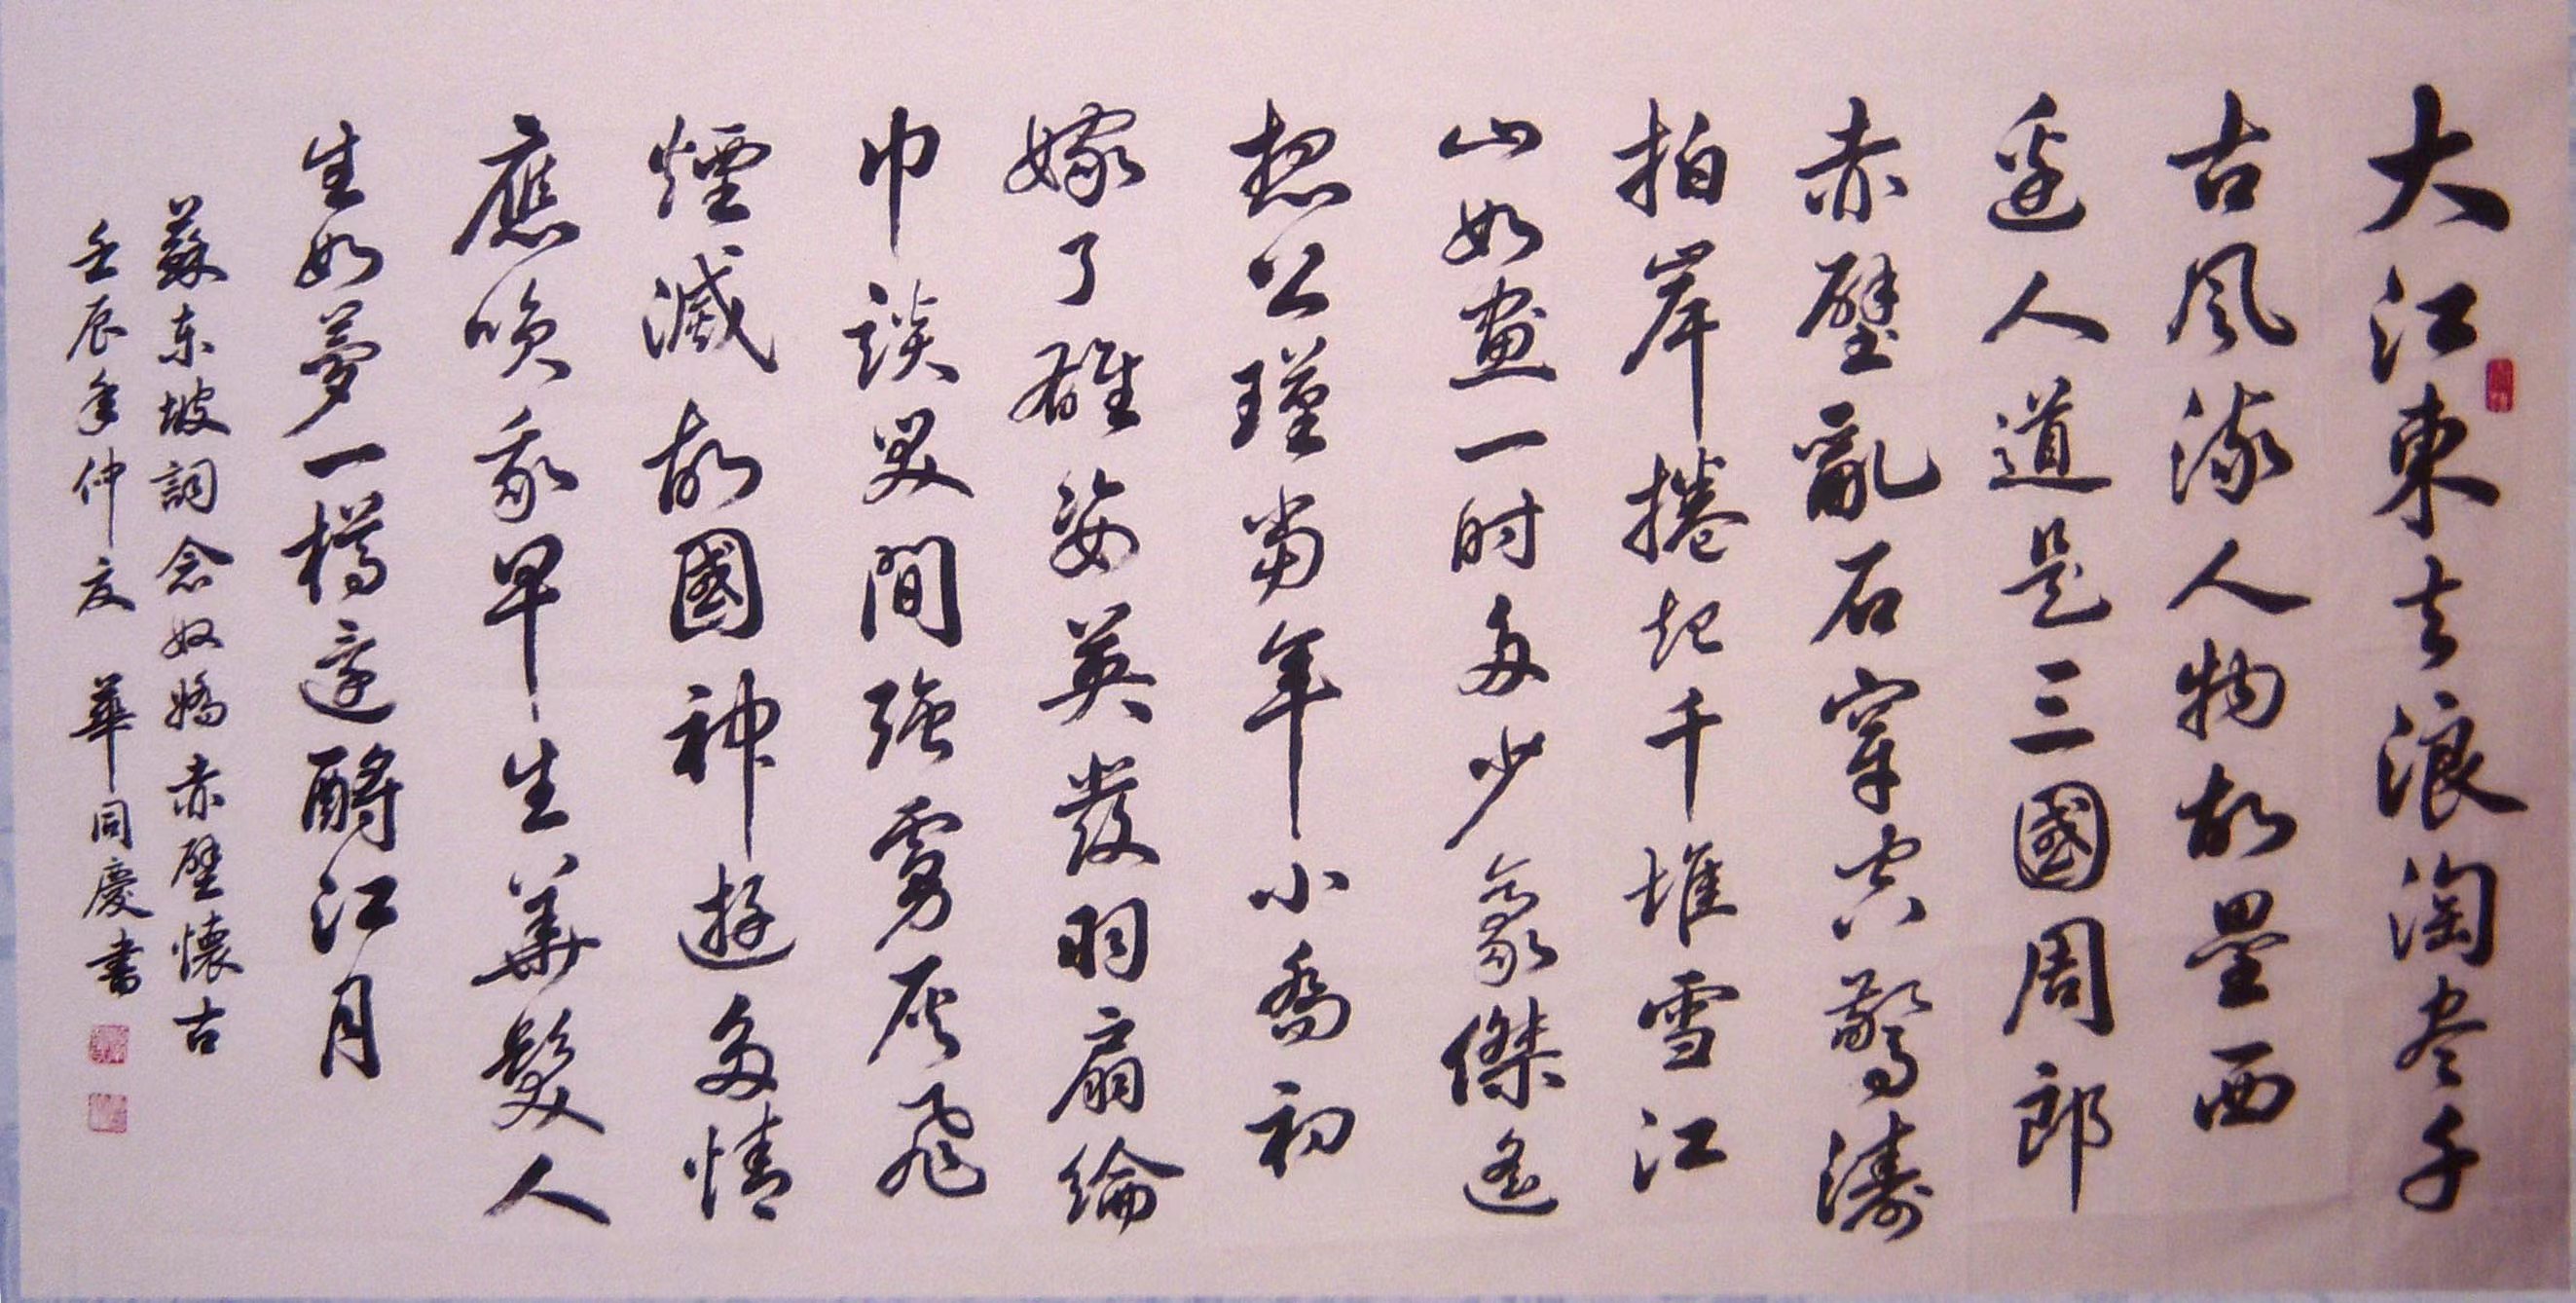 大江東去浪淘盡千
古風流人物故壘西
邊人道是三國周郎
赤壁亂石穿空驚濤
拍岸捲起千堆雪江
山如畫一時多少豪傑遙
想公瑾當年小喬初
嫁了雄姿英發羽扇綸
巾談笑間強虜灰飛
煙滅故國神遊多情
應笑我早生華髮人
生如夢一樽還酹江月
蘇東坡詞念奴嬌赤壁懷古
壬辰年仲夏 華同慶書